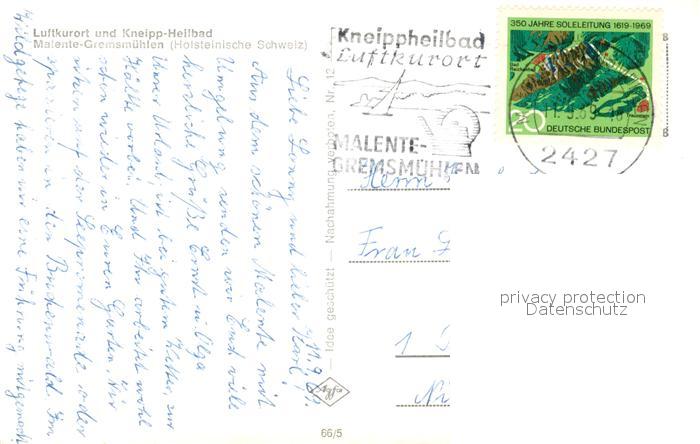 Luftkurort und Kneipp-Heilbad
Malente-Gremsmühlen (Holsteinische Schweiz)
11.9.69.
Liebe Jenny und lieber Karl!
Aus dem schönen Malente mit
Umgebung senden wir Euch viele
herzliche Grüße Ernst u. Olga
Unser Urlaub ist bei gutem Wetter, zur
Hälfte vorbei. Und Ihr arbeitet wohl
schon wieder in Euren Garten. Wir
sitzen auf der Seepromenade oder
spazieren in den Buchenwald. Im
Wildgehege haben wir eine Führung mitgemacht
Idee geschützt — Nachahmung verboten, Nr. 12
Agfa
66/5
Kneippheilbad
Luftkurort
MALENTE-
GREMSMÜHLEN
350 JAHRE SOLELEITUNG 1619-1969
20
DEUTSCHE BUNDESPOST
2427
Herrn
Frau
1
privacy protection
Datenschutz